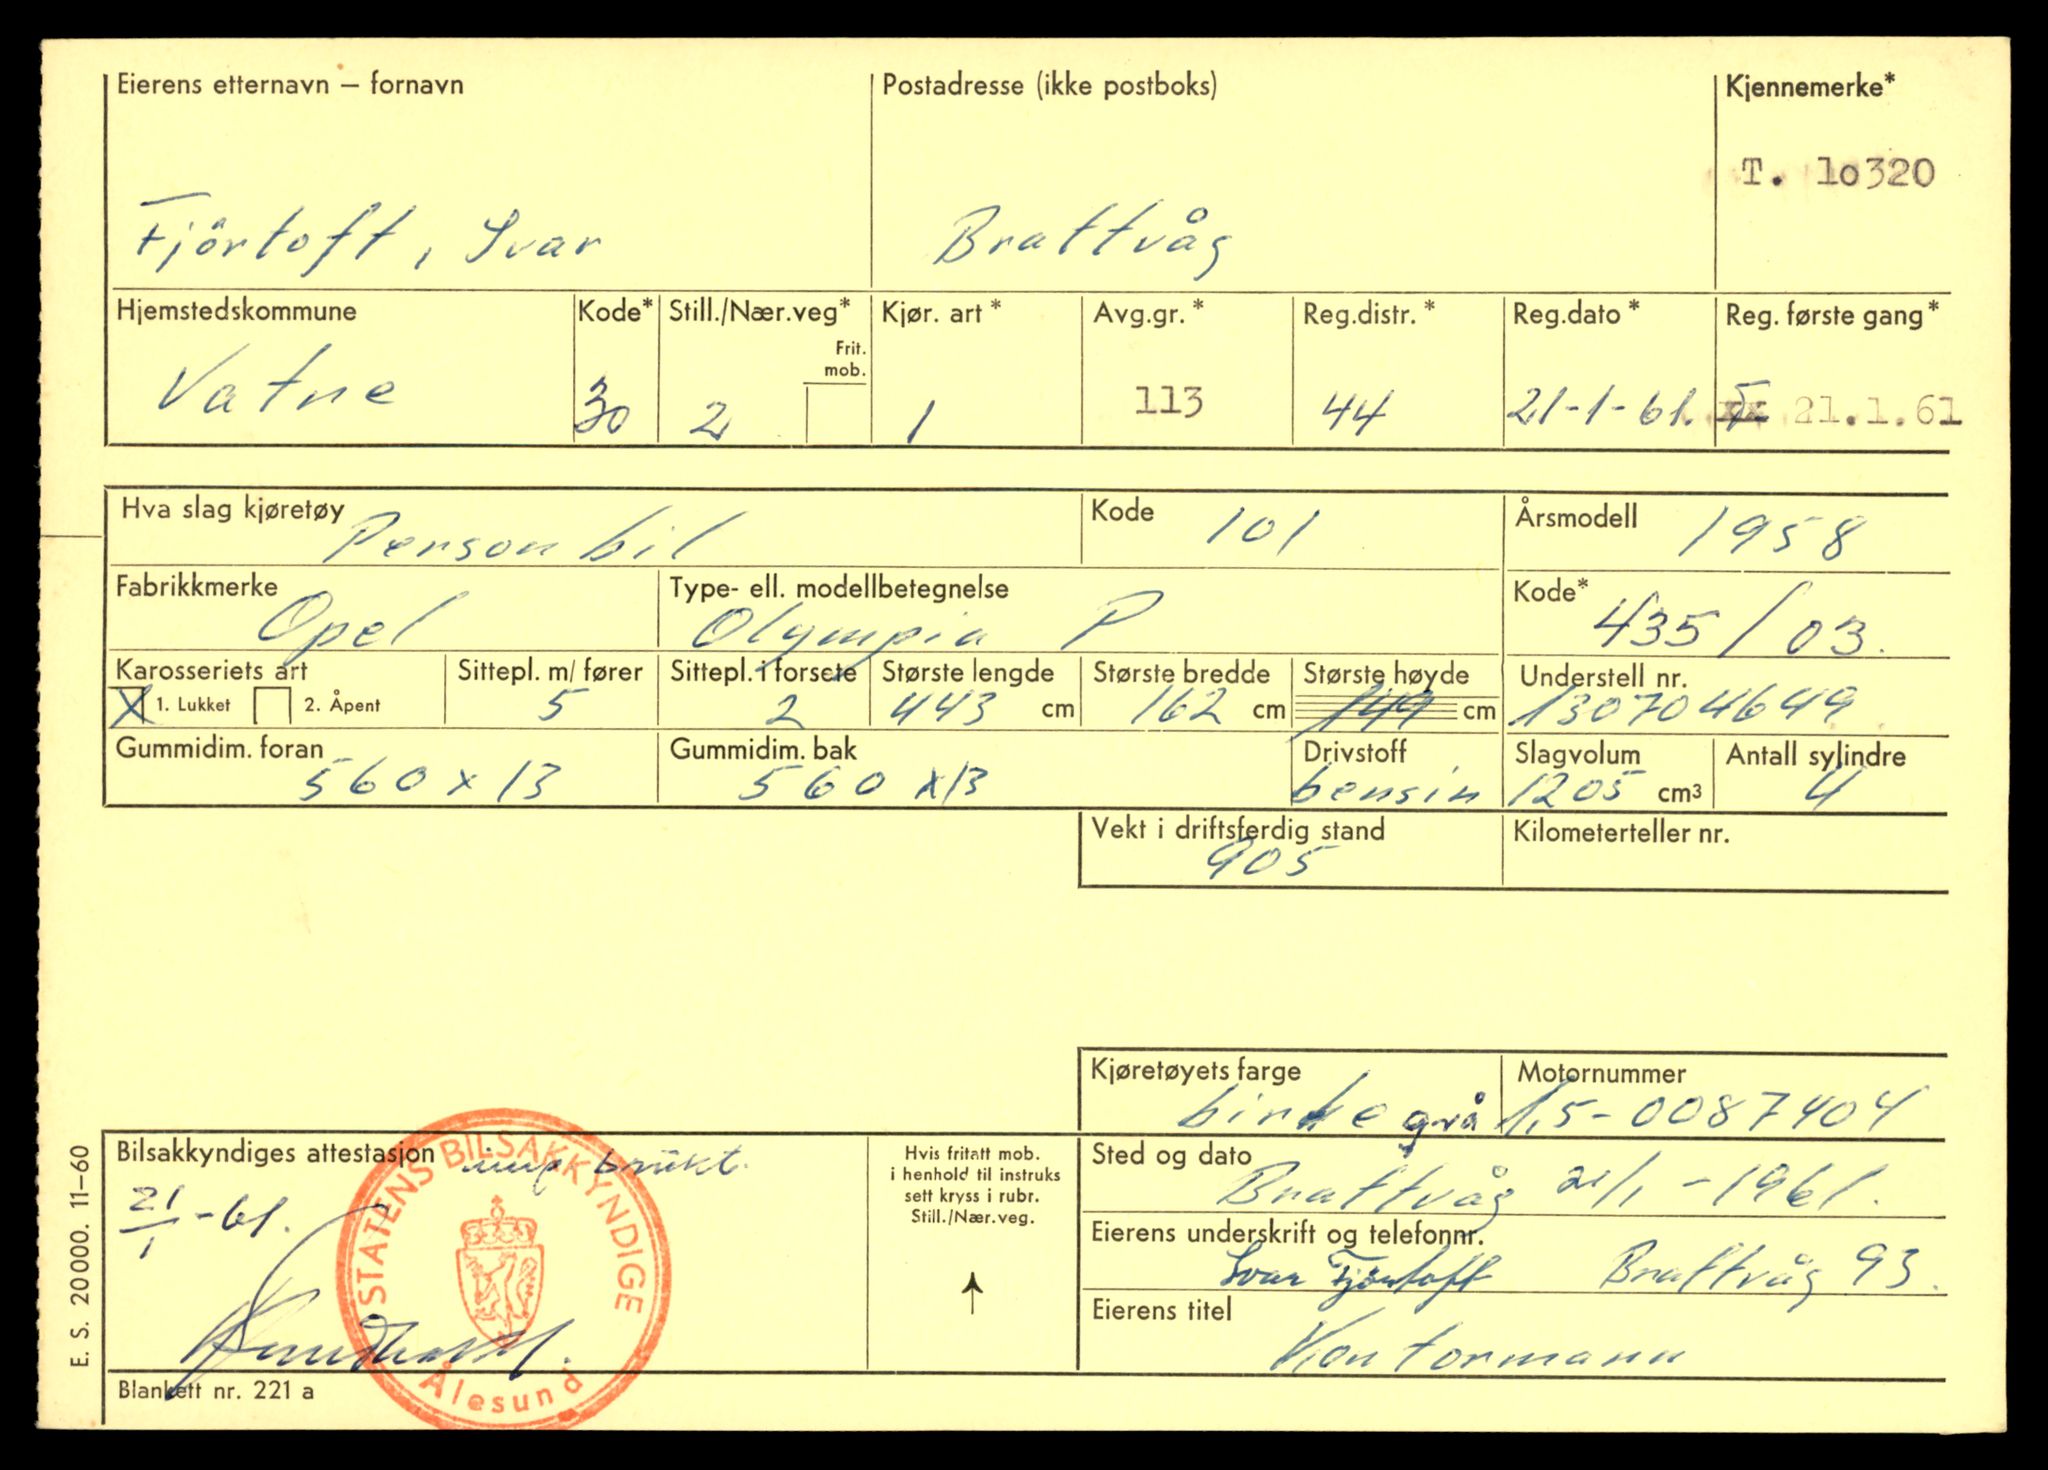 Eierens etternavn – fornavn Postadresse (ikke postboks) Kjennemerke*
T. 10320
Fjörtoft, Ivar Brattvåg
Hjemstedskommune Kode* Still./Nær.veg* Kjør. art* Avg.gr.* Reg.distr.* Reg.dato* Reg. første gang*
Frit. mob.
Vatne 30 2 1 113 44 21-1-61. 21.1.61
Hva slag kjøretøy Personbil Kode 101 Årsmodell 1958
Fabrikkmerke Opel Type- ell. modellbetegnelse Olympia P Kode* 435/03.
Karosseriets art Sittepl. m/ fører Sittepl. i forsete Største lengde Største bredde Største høyde Understell nr.
X 1. Lukket 2. Åpent 5 2 443 cm 162 cm 149 cm 130704649
Gummidim. foran Gummidim. bak Drivstoff Slagvolum Antall sylindre
560 x 13 560 x 13 bensin 1205 cm3 4
Vekt i driftsferdig stand Kilometerteller nr.
905
Kjøretøyets farge Motornummer
grå 1,5-0087404
Bilsakkyndiges attestasjon imp brukt.
21/1-61.
STATENS BILSAKKYNDIGE
Ålesund
Hvis fritatt mob.
i henhold til instruks
sett kryss i rubr.
Still./Nær.veg.
Sted og dato
Brattvåg 21/1-1961.
Eierens underskrift og telefonnr.
Ivar Fjörtoft Brattvåg 93.
Eierens titel
Kontormann
Blankett nr. 221 a
E. S. 20000. 11–60